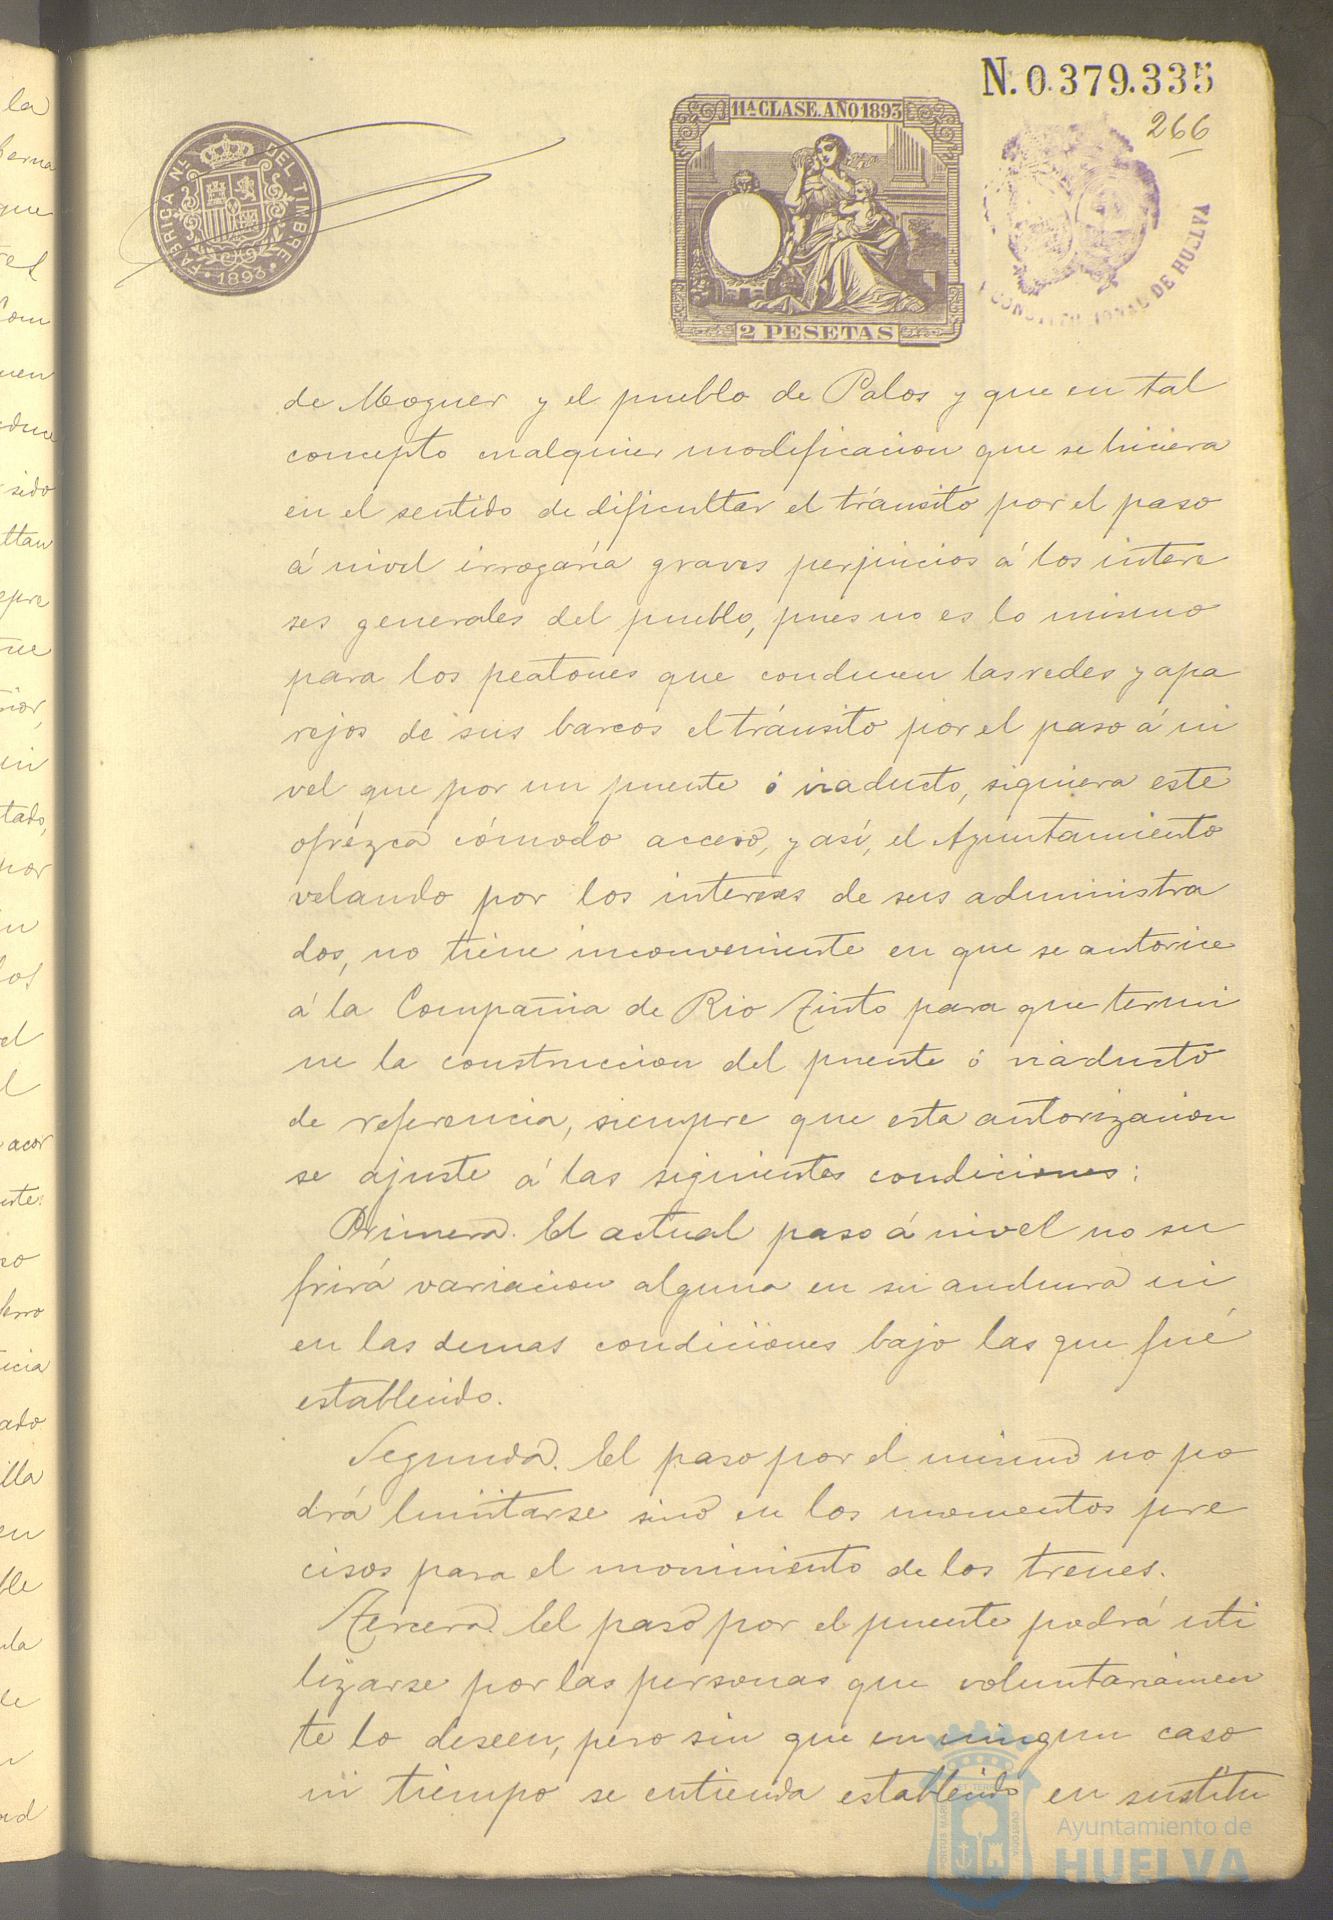 N. 0.379.335
266
11ª CLASE. AÑO 1893
2 PESETAS
FABRICA NL. DEL TIMBRE
1893
CONSTITUCIONAL DE HUELVA
de Moguer y el pueblo de Palos y que en tal
concepto cualquier modificacion que se hiciera
en el sentido de dificultar el tránsito por el paso
á nivel irrogaría graves perjuicios á los intere
ses generales del pueblo, pues no es lo mismo
para los peatones que conducen las redes y apa
rejos de sus barcos el tránsito por el paso á ni
vel que por un puente ó viaducto, siquiera este
ofrézca cómodo acceso, y así, el Ayuntamiento
velando por los intereses de sus administra
dos, no tiene inconveniente en que se autorice
á la Compañia de Rio Tinto para que termi
ne la construccion del puente ó viaducto
de referencia, siempre que esta autorizacion
se ajuste á las siguientes condiciones:
Primera. El actual paso á nivel no su
frirá variacion alguna en su anchura ni
en las demas condiciones bajo las que fué
establecido.
Segunda. El paso por el mismo no po
drá limitarse sino en los momentos pre
cisos para el movimiento de los trenes.
Tercera El paso por el puente podrá uti
lizarse por las personas que voluntariamen
te lo deseen, pero sin que en ningun caso
ni tiempo se entienda establecido en sustitu
Ayuntamiento de
HUELVA